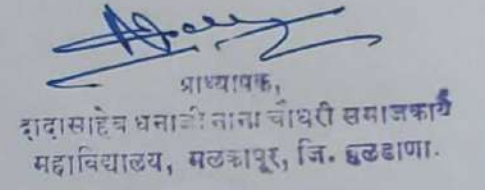 प्राध्यापक,
दादासाहेब धनाजी नाना चौधरी समाजकार्य
महाविद्यालय, मलकापूर, जि. बुलढाणा.